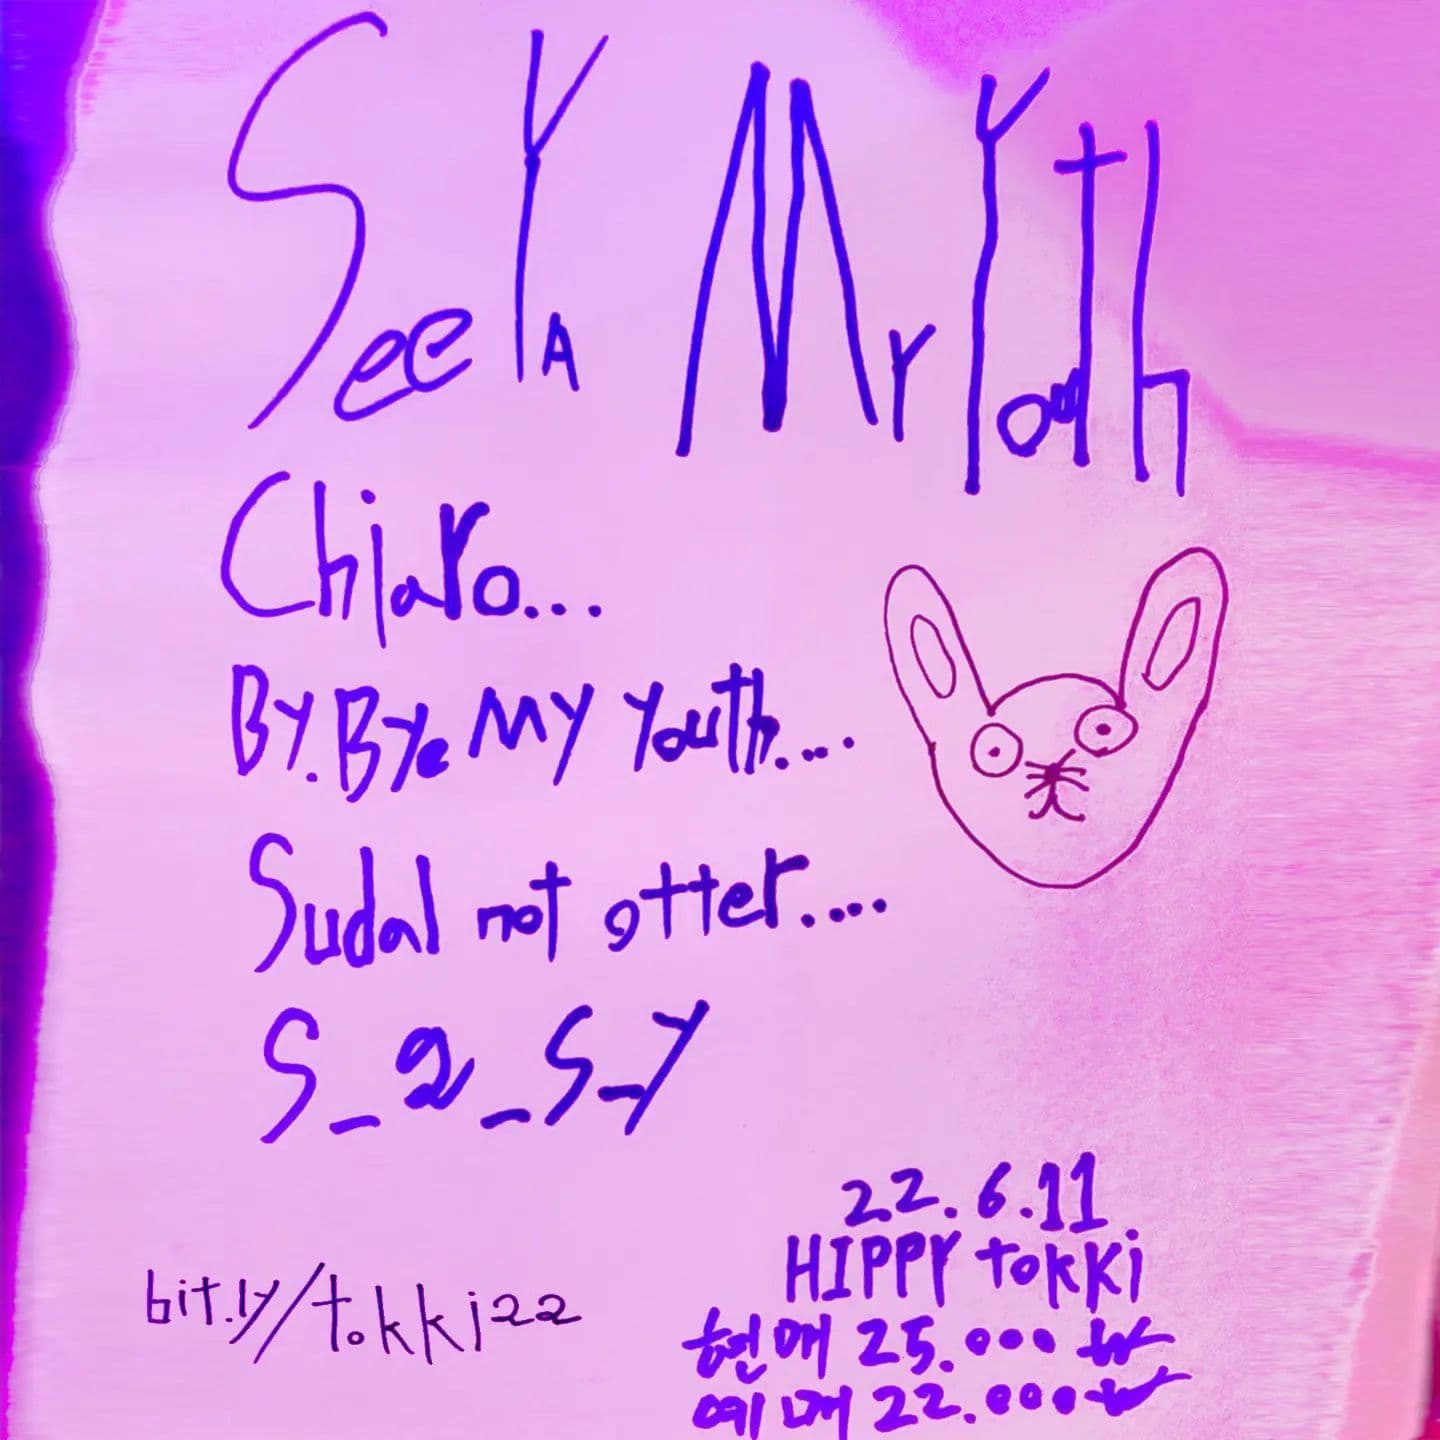 See YA My Youth
Chiaro...
By.Bye My Youth....
Sudal not otter....
S_a_S_y
22.6.11
HIPPY tokki
현매 25.000 ₩
예매 22.000 ₩
bit.ly/tokki22